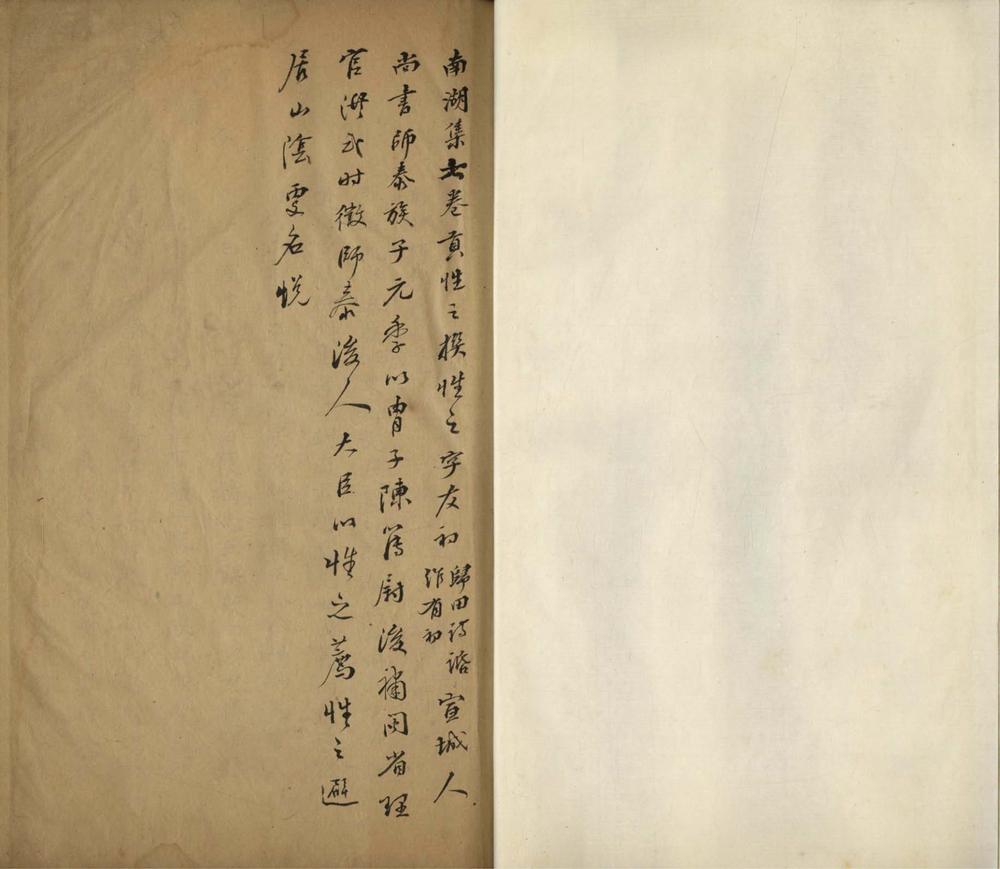 南湖集七卷貢性之撰性之字友初歸田詩話作有初宣城人
尚書師泰族子元季以胄子除簿尉後補閩省理
官洪武時徵師泰後人大臣以性之薦性之避
居山陰更名悅